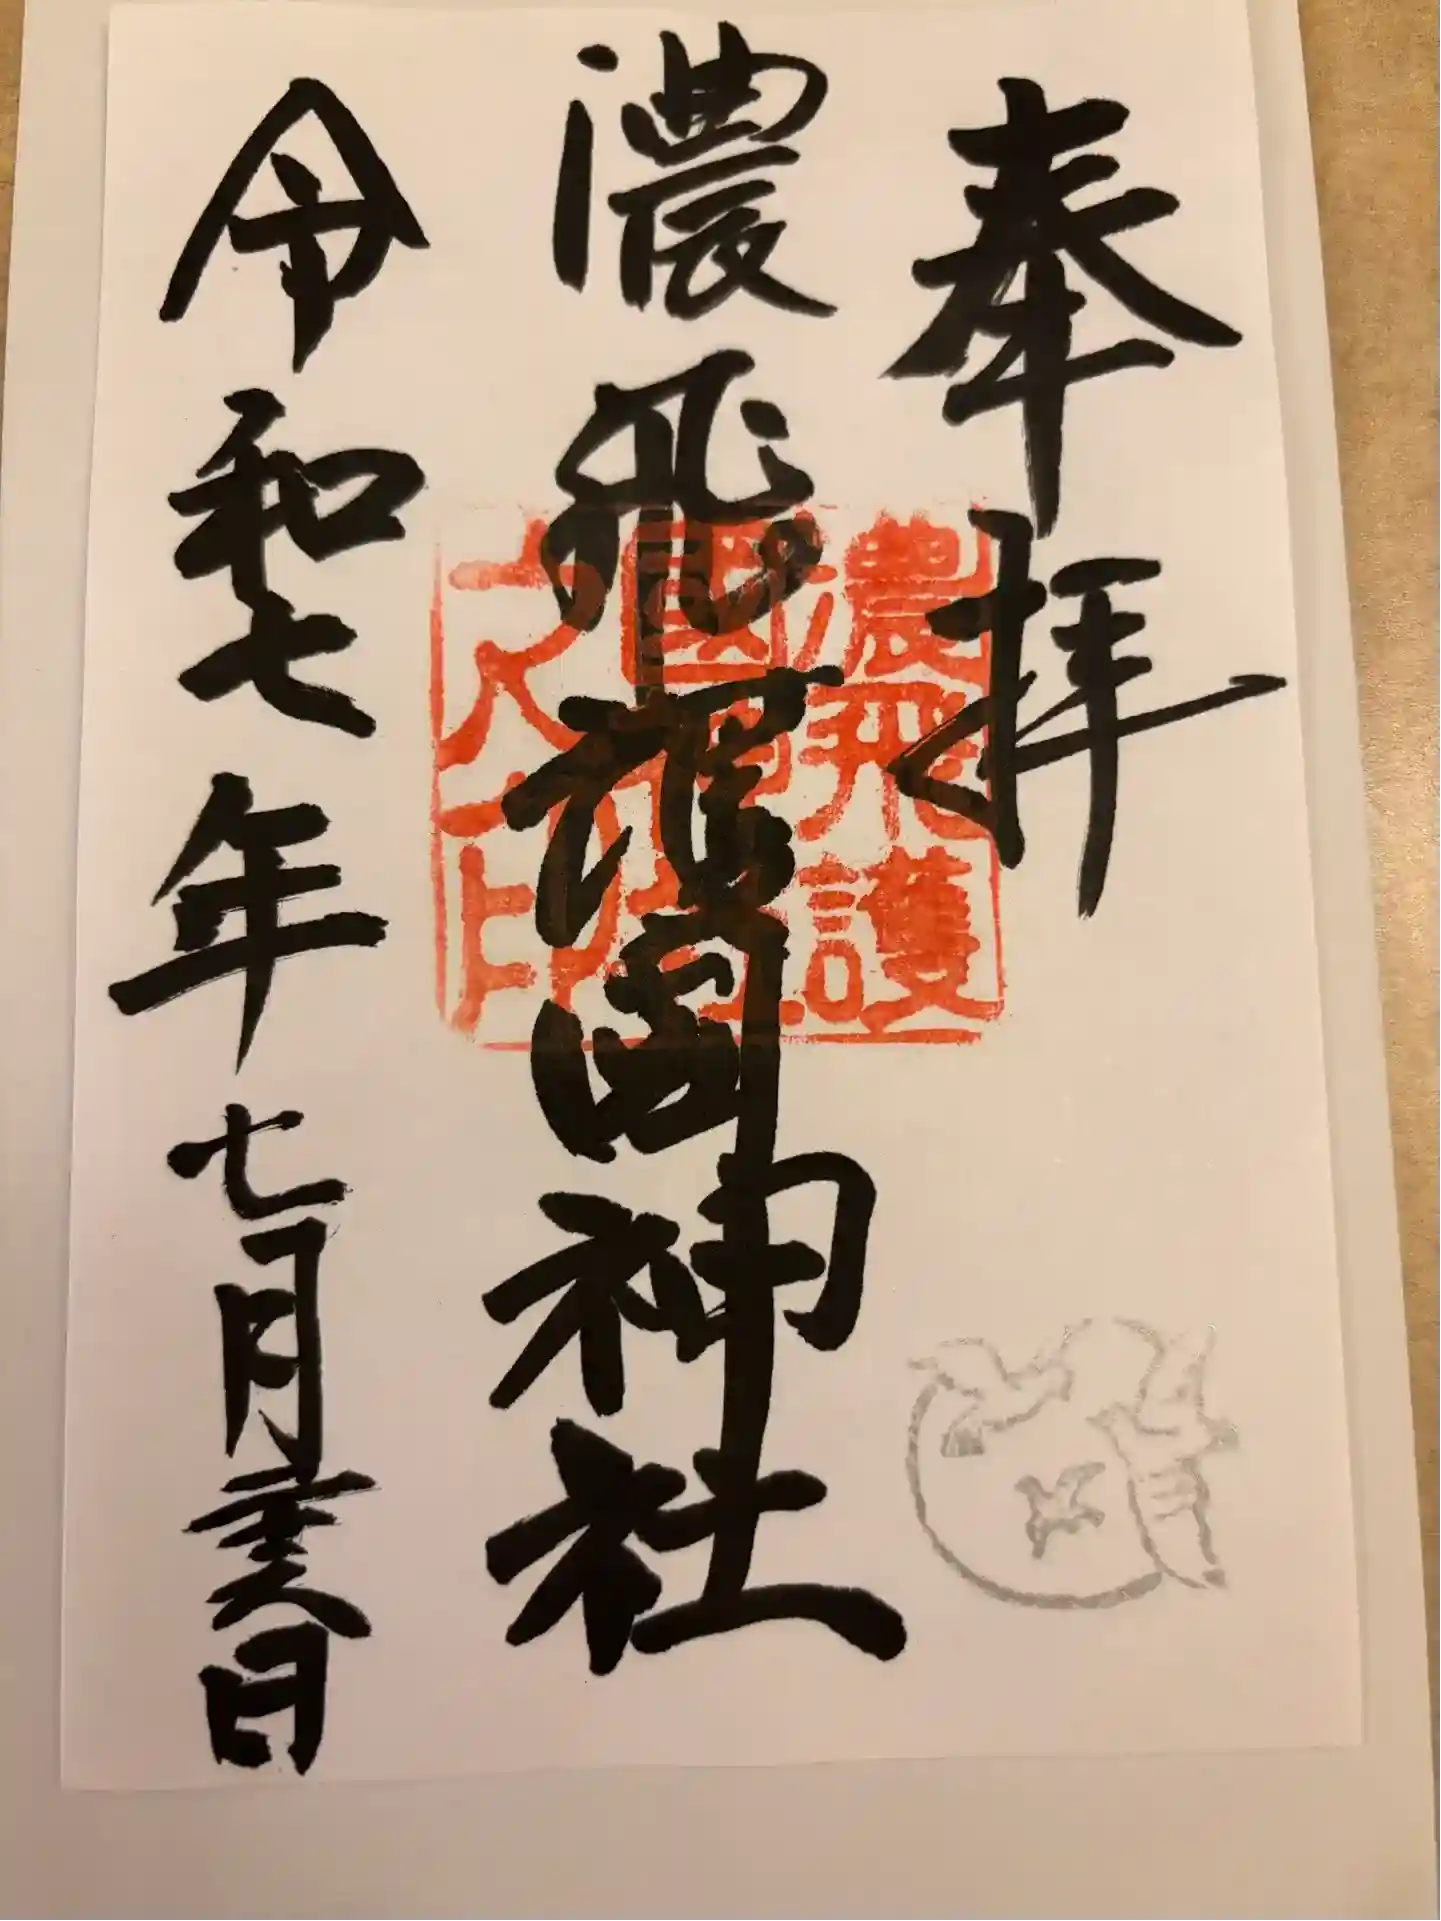 奉拝
濃飛護國神社
令和七年七月廿八日
濃飛護
國神社
之印